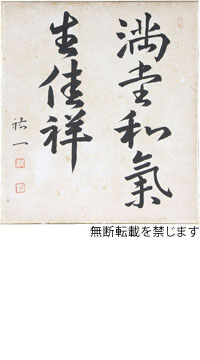 満堂和氣
生佳祥
祐一
無断転載を禁じます